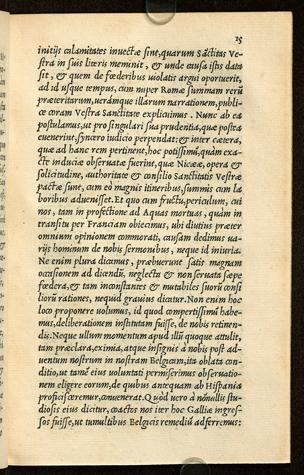 15
initijs calamitates inuectæ sint, quarum Sãctitas Ve-
stra in suis literis meminit, & unde causa istis data
sit, & quem de fœderibus uiolatis argui oportuerit,
ad id usque tempus, cum nuper Romæ summam rerũ
præteritarum, ueramque illarum narrationem, publi-
ce coram Vestra Sanctitate explicuimus. Nunc ab ea
postulamus, ut pro singulari sua prudentia, quæ postea
euenerint, syncero iudicio perpendat: & inter cætera,
quæ ad hanc rem pertinent, hoc potissimũ, quàm exa-
ctè induciæ obseruatæ fuerint, quæ Nicææ, opera &
solicitudine, authoritate & consilio Sanctitatis Vestræ
pactæ sunt, cum eò magnis itineribus, summis cum la
boribus aduenisset. Et quo cum fructu, periculum, cui
nos, tam in profectione ad Aquas mortuas, quàm in
transitu per Franciam obiecimus, ubi diutius præter
omnium opinionem commorati, causam dedimus ua-
rijs hominum de nobis sermonibus, neque id iniuria.
Ne enim plura dicamus, præbuerunt satis magnam
occasionem ad dicendũ, neglecta & non seruata sæpe
fœdera, & tam inconstantes & mutabiles suorũ consi
liorũ rationes, nequid grauius dicatur. Non enim hoc
loco proponere uolumus, id quod compertissimũ habe-
mus, deliberationem institutam fuisse, de nobis retinen-
dis. Neque ullum momentum apud illũ quoque attulit,
tam præclara, eximia, atque insignis à nobis post ad-
uentum nostrum in nostram Belgicam, ita oblata con-
ditio, ut tamẽ eius uoluntati permiserimus obseruatio-
nem eligere eorum, de quibus antequam ab Hispania
proficisceremur, conuenerat. Quod uerò à nõnullis stu-
diosis eius dicitur, coactos nos iter hoc Galliæ ingres-
sos fuisse, ut tumultibus Belgicis remediũ adferremus: